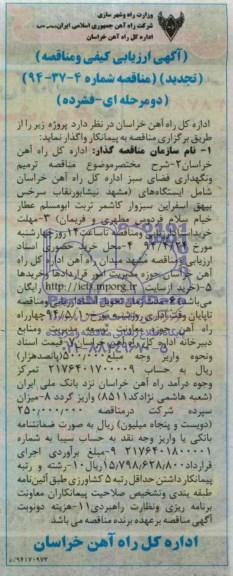 وزارت راه وشهر سازی
شرکت راه آهن جمهوری اسلامی ایران
اداره کل راه آهن خراسان
(آگهی ارزیابی کیفی ومناقصه)
(تجدید) (مناقصه شماره ۴-۳۷-۹۴)
(دومرحله ای-فشرده)
اداره کل راه آهن خراسان در نظر دارد پروژه زیر را از
طریق برگزاری مناقصه به پیمانکار واگذار نماید:
۱- نام سازمان مناقصه گذار: اداره کل راه آهن
خراسان۲-شرح مختصرموضوع مناقصه ترمیم
ونگهداری فضای سبز اداره کل راه آهن خراسان
شامل ایستگاههای (مشهد نیشابورنقاب سرخس
بیهق اسفراین سبزوار کاشمر تربت ابومسلم عطار
خیام سلام فردوس مطهری و فریمان) ۳-مهلت
خرید اسناد ارزیابی ومناقصه تاساعت۱۴روزچهارشنبه
مورخ ۹۴/۴/۲۴ ۴-محل خرید حضوری اسناد
ارزیابی ومناقصه مشهد میدان راه آهن اداره کل راه
آهن خراسان حوزه مدیریت امور قراردادها وخریدها
۵-(خرید ازسایت http://iets.mporg.ir) رایگان
می باشد)۶-مدت
تاپایان وقت اداری روز مورخ ۹۴/۵/۱۰چهارراه
راه آهن حوزه معاونت توسعه مدیریت ومنابع
دبیرخانه اداره کل راه آهن خراسان۷-قیمت اسناد
ونحوه واریز وجه مبلغ ۵۰۰/۰۰۰(پانصدهزار)
ریال به حساب ۲۱۷۶۴۰۱۷۰۰۰۰۹ تمرکز
وجوه درآمد راه آهن خراسان نزد بانک ملی ایران
(شعبه هاشمی نژادکد۸۵۱۱) واریز گردد ۸-میزان
سپرده شرکت درمناقصه ۲۵۰/۰۰۰/۰۰۰
(دویست و پنجاه میلیون) ریال به صورت ضمانتنامه
بانکی یا واریز وجه نقد به حساب سیبا به شماره
۲۱۷۶۴۰۱۸۰۰۰۰۱ ۹-مبلغ برآوردی اجرای
قرارداد۱۵/۷۹۸/۶۲۸/۸۰۰ریال۱۰-رشته و رتبه
پیمانکار داشتن حداقل رتبه ۵ کشاورزی طبق آئین نامه
طبقه بندی وتشخیص صلاحیت پیمانکاران معاونت
برنامه ریزی ونظارت راهبردی۱۱-هزینه دونوبت
آگهی مناقصه برعهده برنده مناقصه می باشد
اداره کل راه آهن خراسان